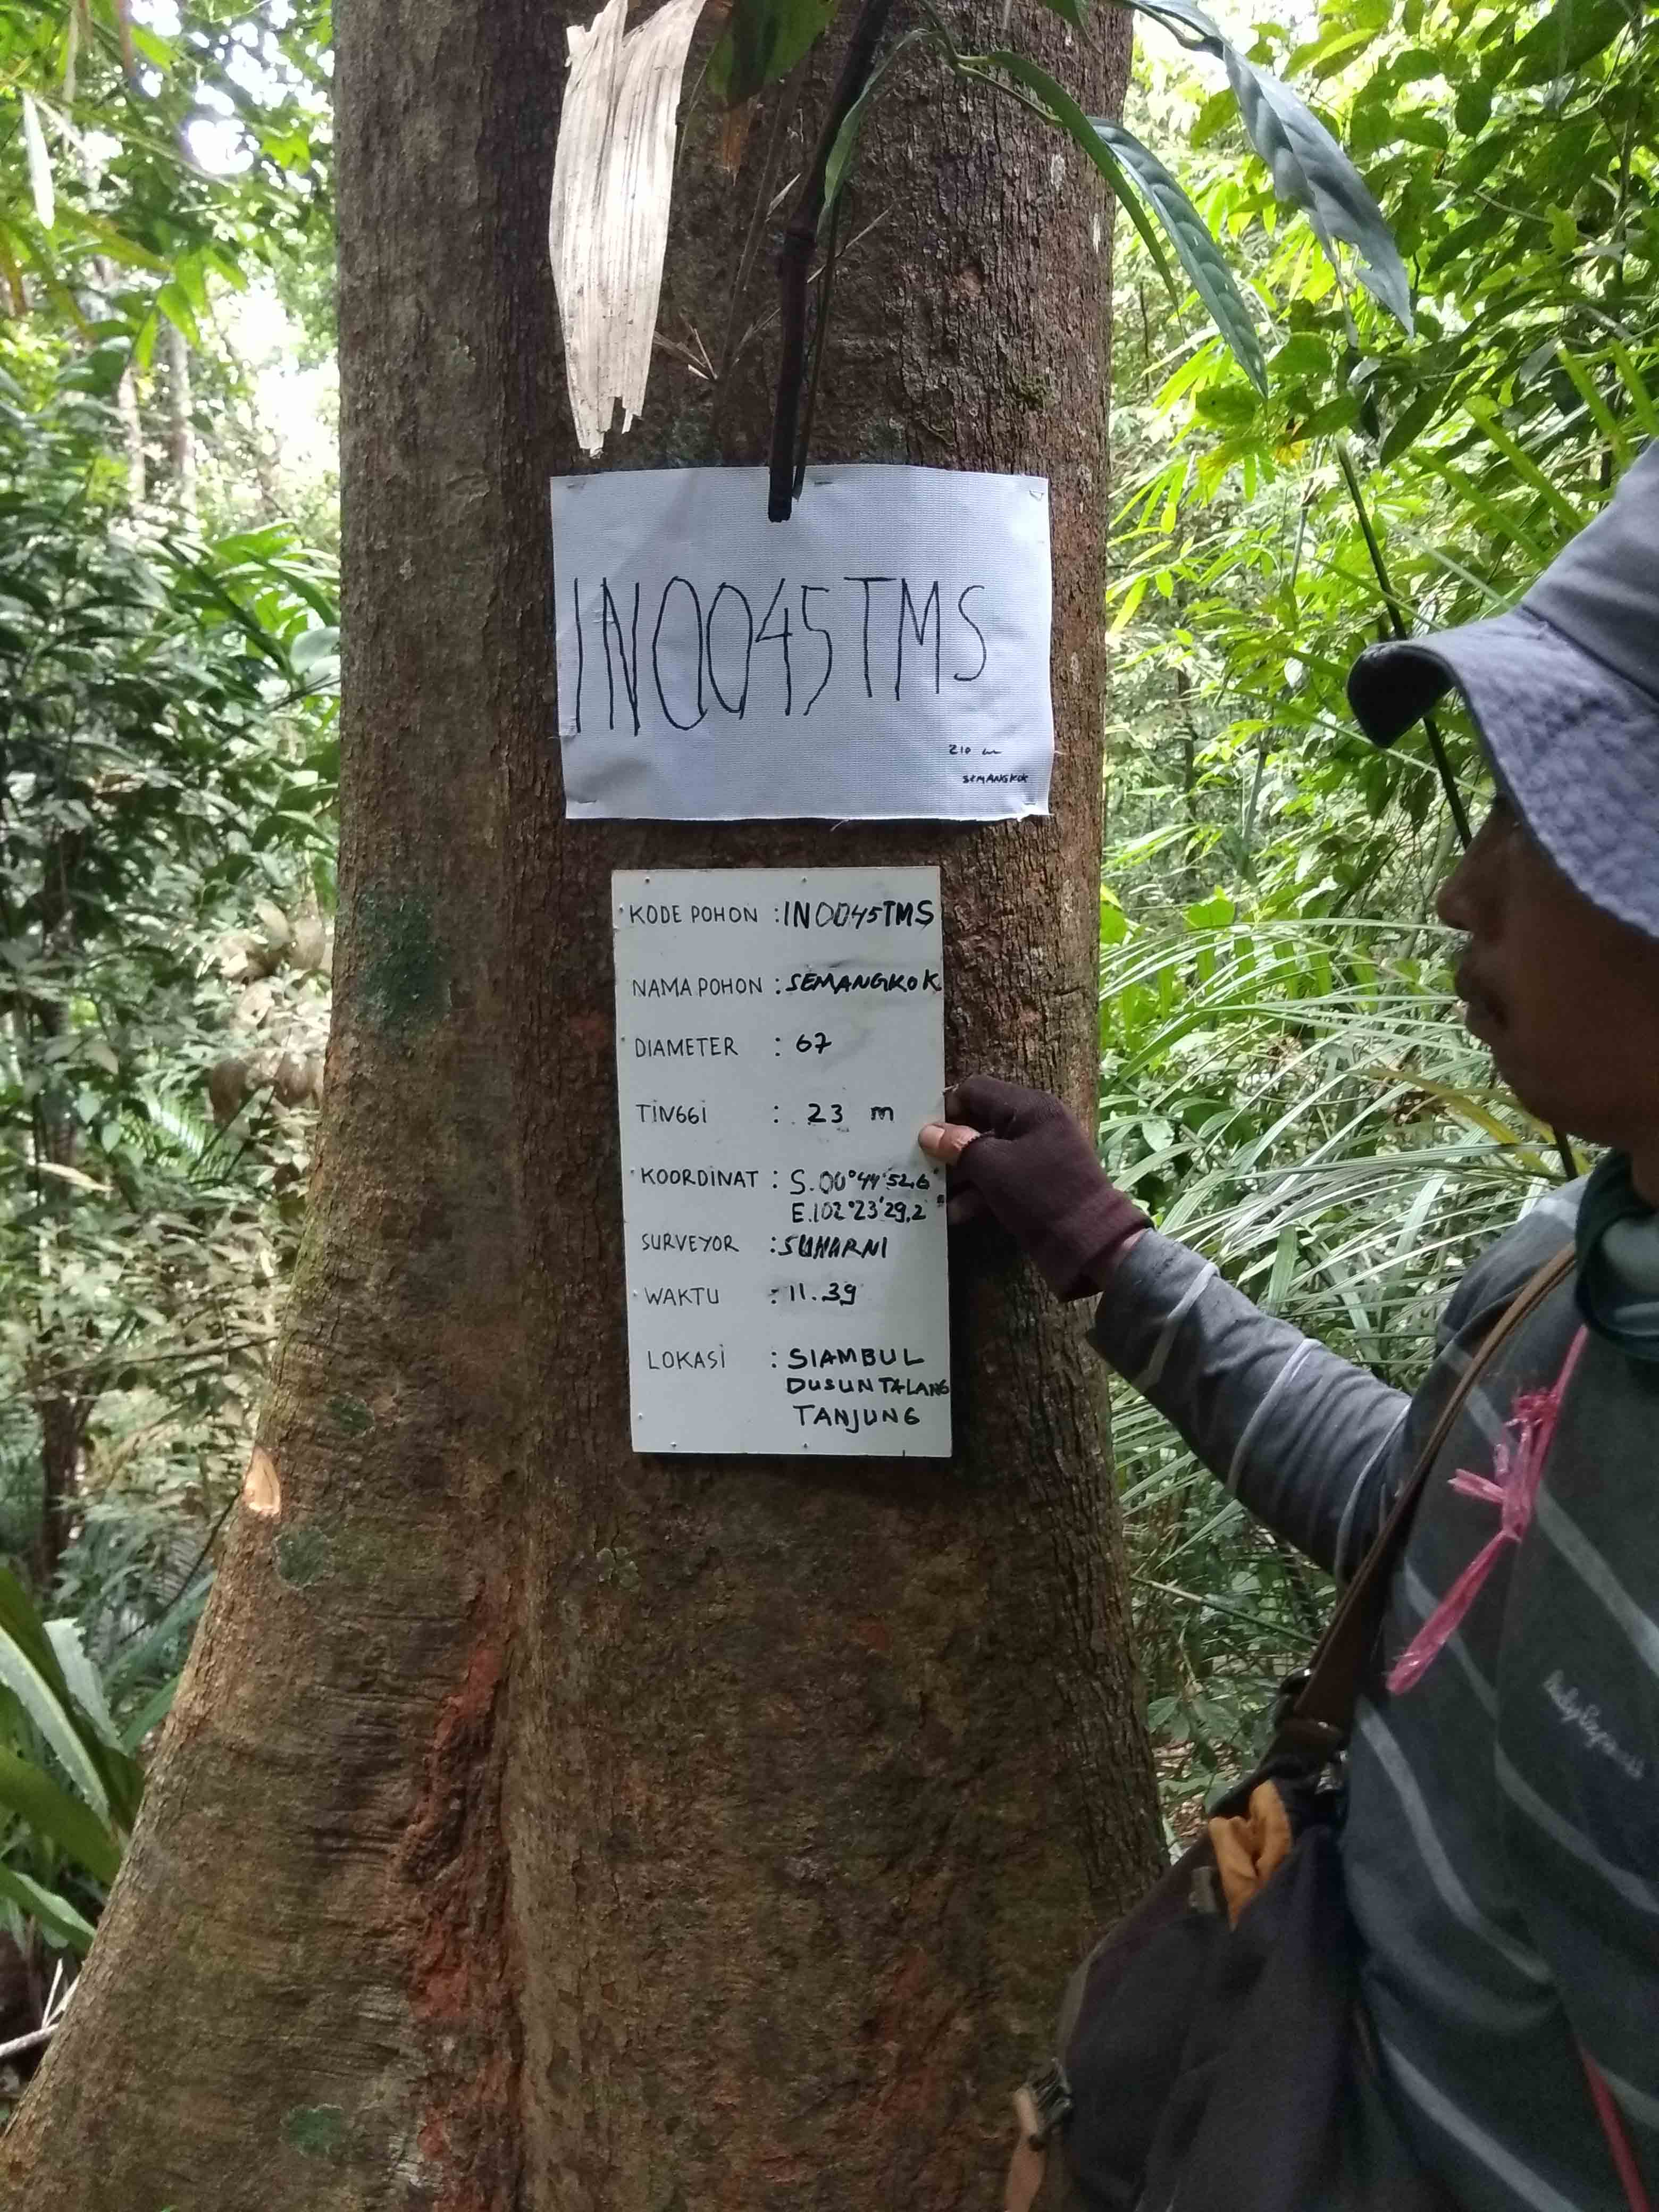 IN0045TMS
210 cm
SEMANGKOK
KODE POHON : IN0045TMS
NAMA POHON : SEMANGKOK
DIAMETER : 67
TINGGI : 23 m
KOORDINAT : S.00°44'52,6"
E.102°23'29,2"
SURVEYOR : SUHARNI
WAKTU : 11.39
LOKASI : SIAMBUL
DUSUN TALANG
TANJUNG